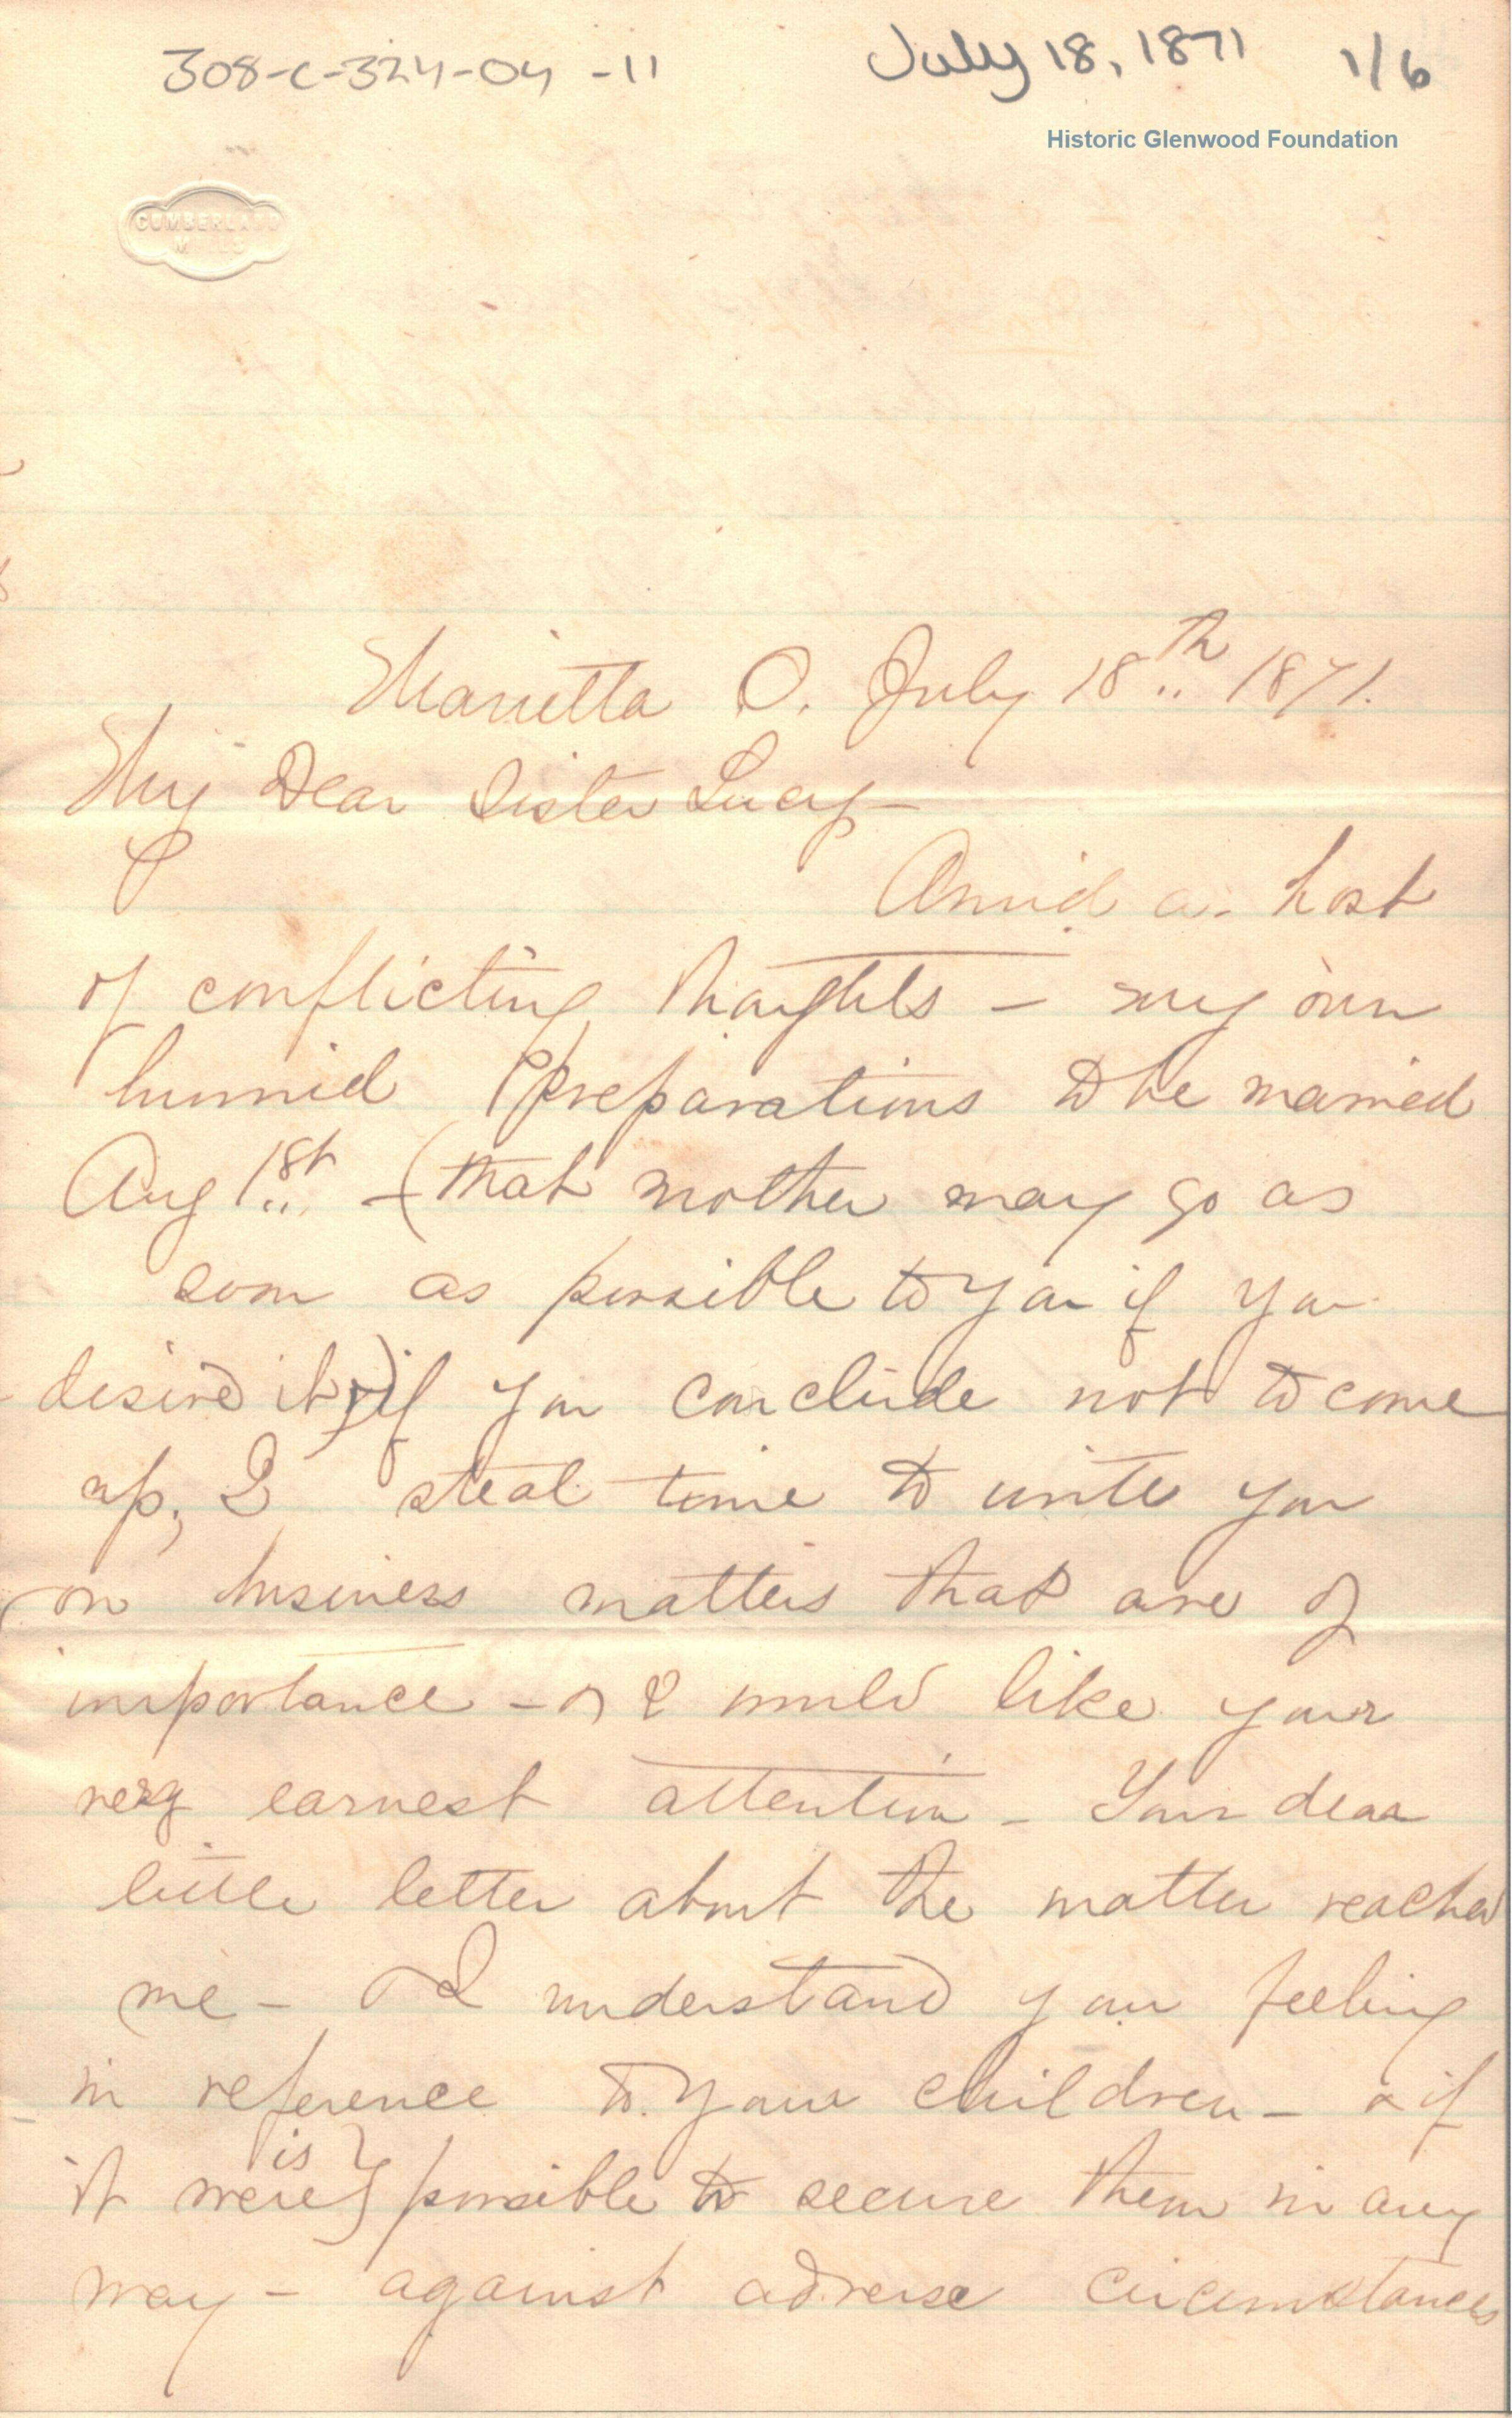 308-C-324-04 -11 July 18, 1871 1/6
Historic Glenwood Foundation
CUMBERLAND
MILLS
Marietta O. July 18th 1871.
My Dear Sister Lucy -
Amid a host
of conflicting thoughts - my own
hurried preparations to be married
Aug 1st - (that mother may go as
soon as possible to you if you
desire it) if you conclude not to come
up, I steal time to write you
on business matters that are of
importance - & I would like your
very earnest attention - Your dear
little letter about the matter reached
me - & I understand your feeling
in reference to your children - & if
is
it were} possible to secure them in any
way - against adverse circumstances